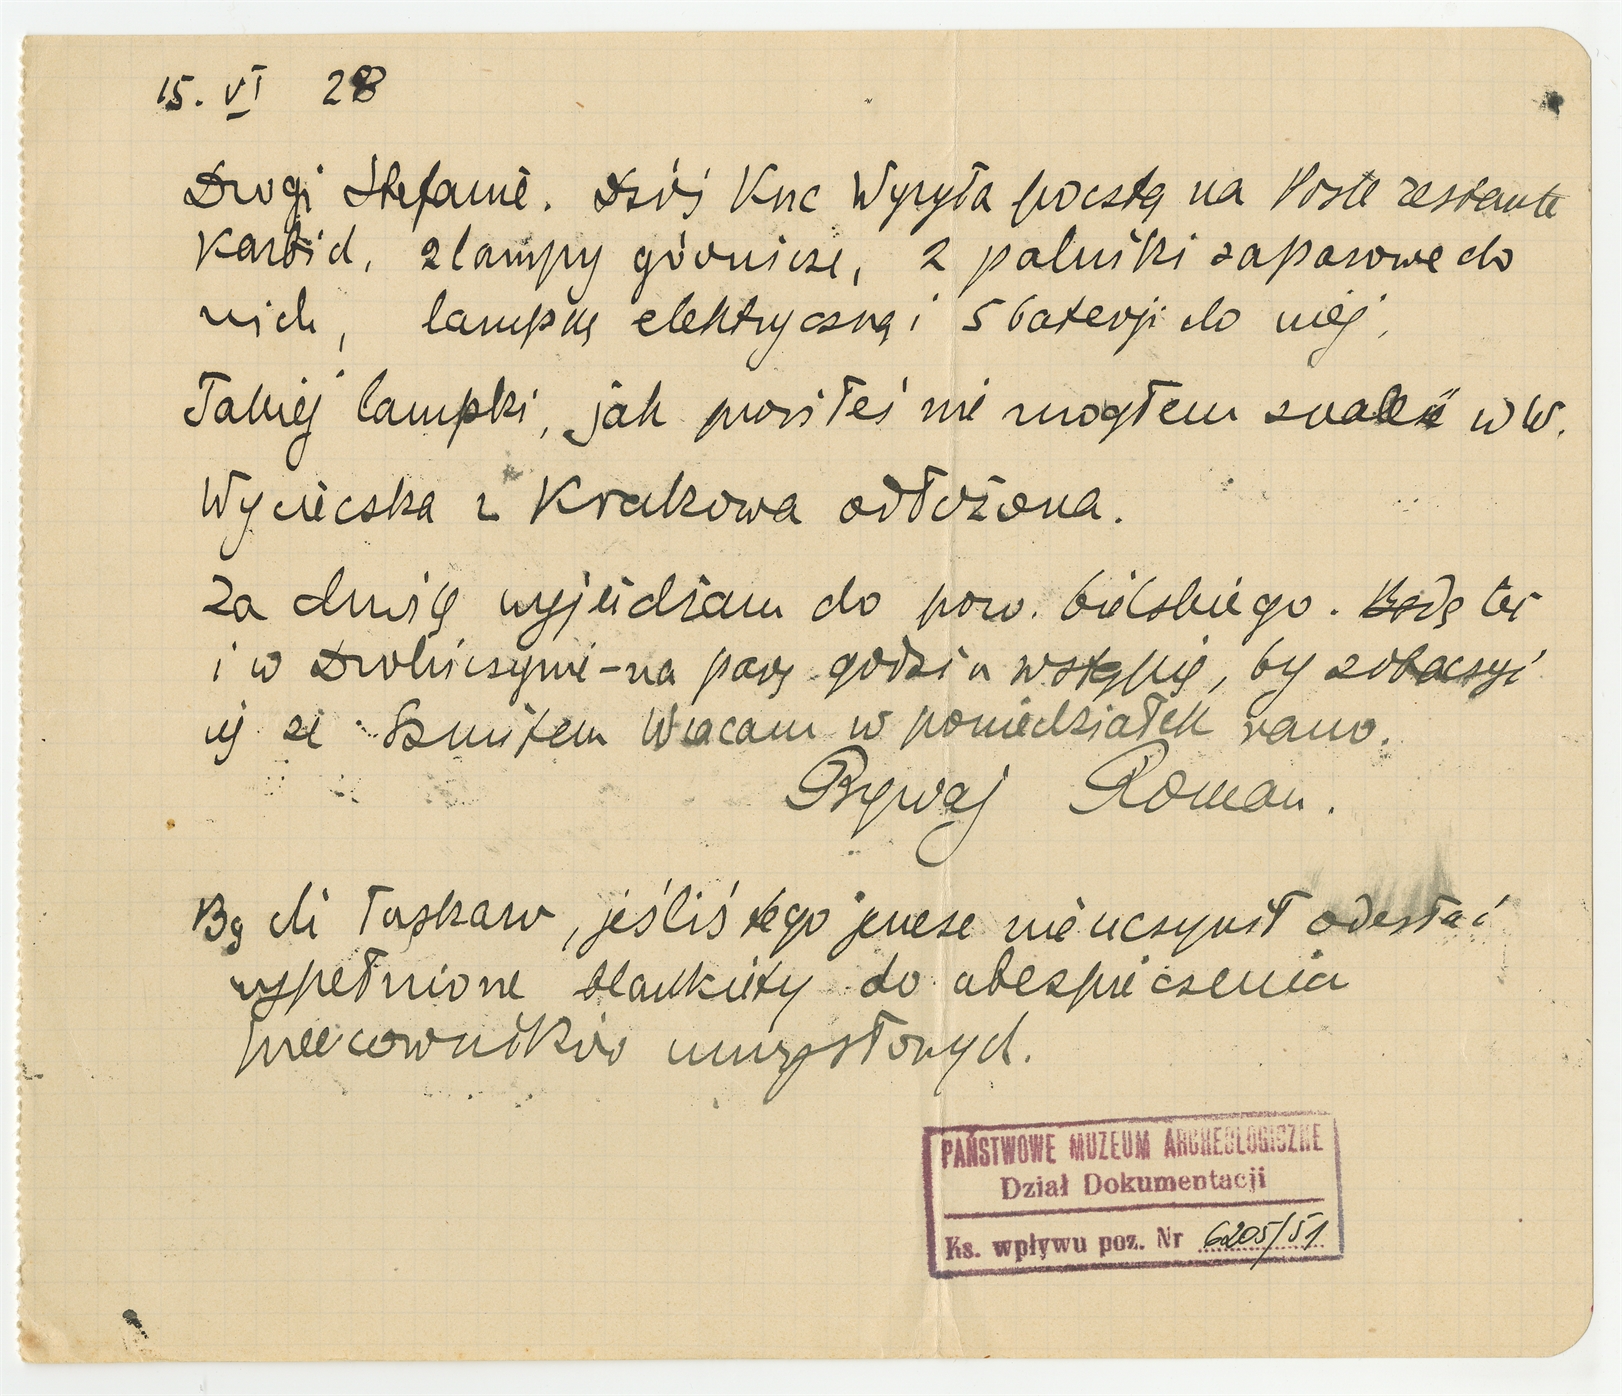 15. VI 28
Drogi Stefanie. Dziś Knc Wysyła pocztą na Poste restante
Karbid, 2 lampy górnicze, 2 palniki zapasowe do
nich, lampkę elektryczną i 5 bateryj do niej,
Takiej lampki, jak prosiłeś nie mogłem znaleźć w W.
Wycieczka z Krakowa odłożona.
Za chwilę wyjeżdżam do pow. bielskiego. Będę też
i w Drohiczynie – na parę godzin wstąpię, by zobaczyć
się ze Szmitem Wracam w poniedziałek rano.
Bywaj Roman.
Bądź łaskaw, jeśliś tego jeszcze nie uczynił odesłać
wypełnione blankiety do ubezpieczenia
pracowników umysłowych.
PAŃSTWOWE MUZEUM ARCHEOLOGICZNE
Dział Dokumentacji
Ks. wpływu poz. Nr 6205/51